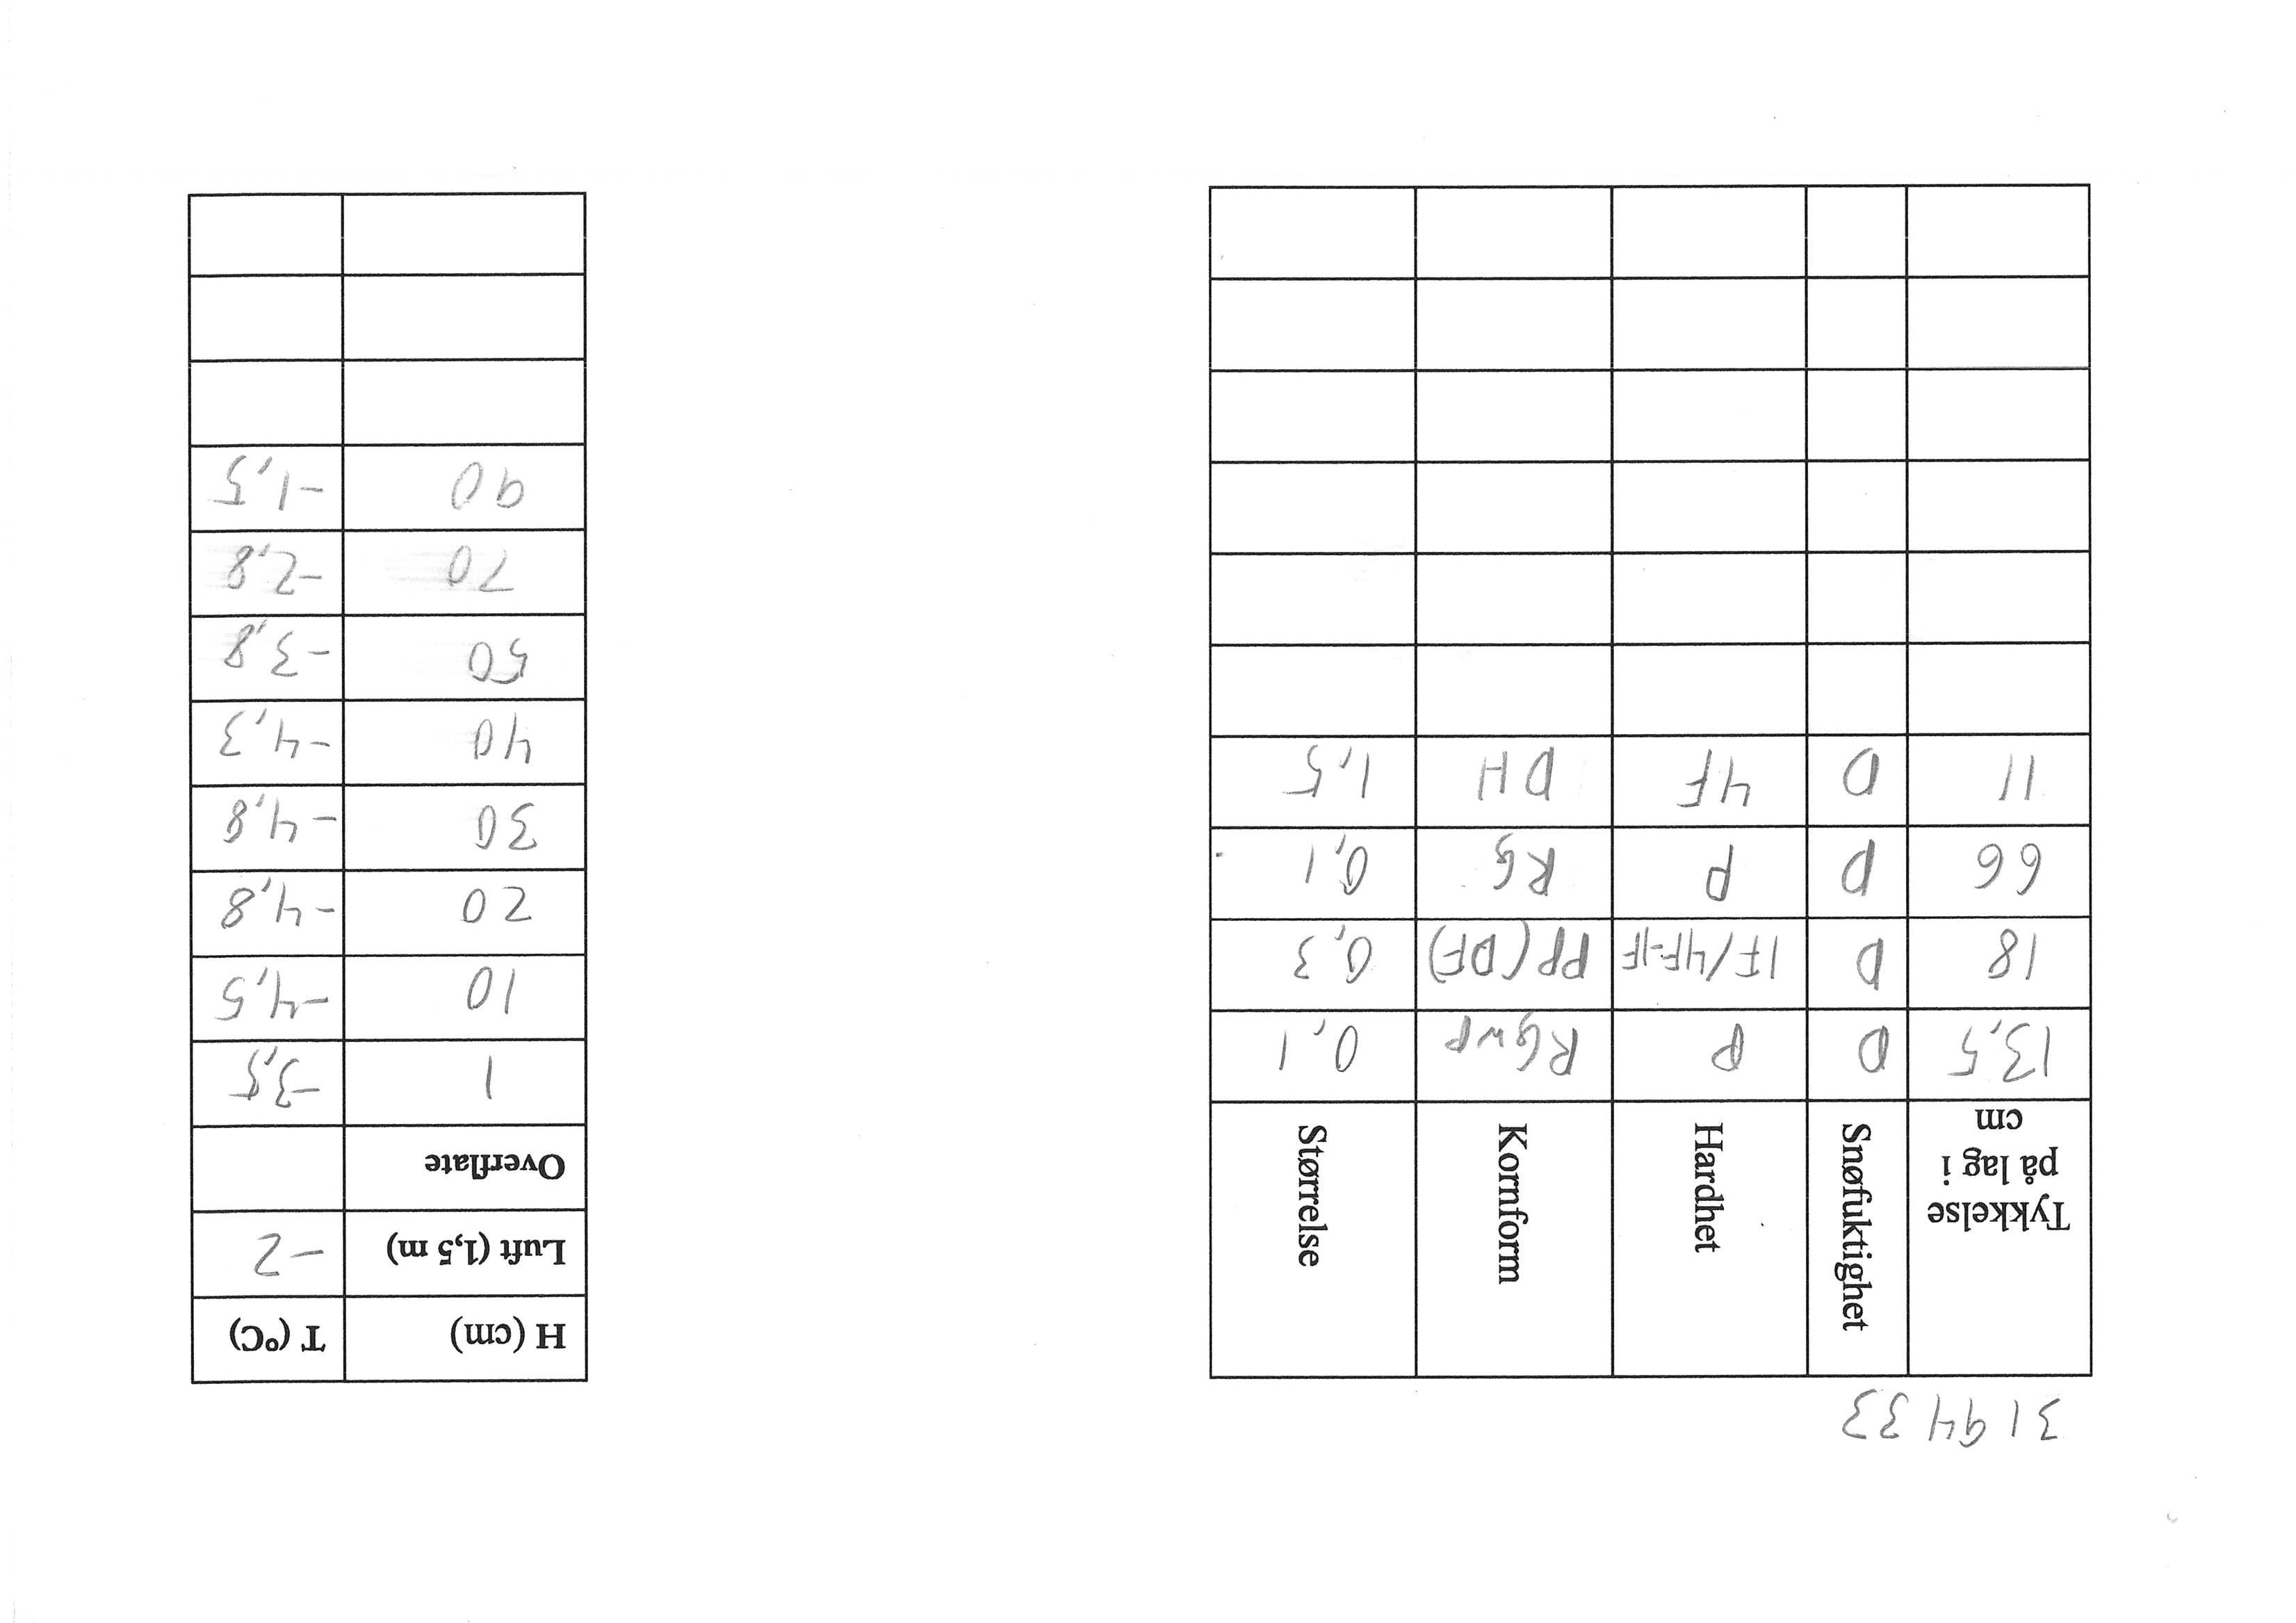 319433
Tykkelse på lag i cm Snøfuktighet Hardhet Kornform Størrelse
13,5 D P RGwp 0,1
18 D 1F/4F-1F PP(DF) 0,3
66 D P RG 0,1
11 D 4F DH 1,5
H (cm) T (ºC)
Luft (1,5 m) -2
Overflate
1 -3,5
10 -4,5
20 -4,8
30 -4,8
40 -4,3
50 -3,8
70 -2,8
90 -1,5